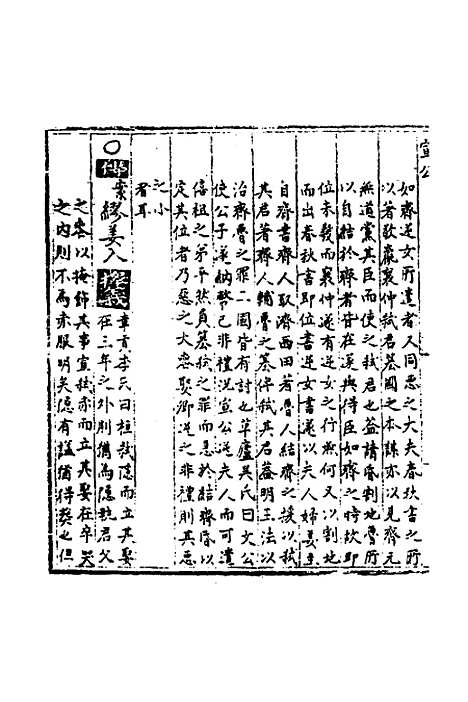 宣公
如齊逆女所遣者人同惡之大夫春秋書之所
以著歜襄仲弒君墓國之本謀亦以見齊元
無道黨其臣而使之弒君也益請昏割地魯所
以自結於齊者皆在
位未發而襄仲遂有逆女之行無何又以割地
而出春秋書即位書逆女書遂以夫人婦姜至
自齊書齊人取濟西田著魯人結齊之援以弒
其君著齊人輔魯之篡俾弒其君蓋明王法以
治齊魯之罪二國皆有討也草廬吳氏曰文公
使公子遂納幣已非禮況宣公逆夫人而可遣
僖祖之弟乎然負篡弒之罪而急於結齊昏以
定其位者乃惡之大惡娶卿逆之非禮則其惡
之小
者耳
○傳案繆姜入
章貢李氏曰桓弒隱而立其娶
在三年之外則猶為隱執君父
之喪以掩飾其事宣弒赤而立其娶在卒哭
之內則不為赤服明矣隱有諡猶得葵也但